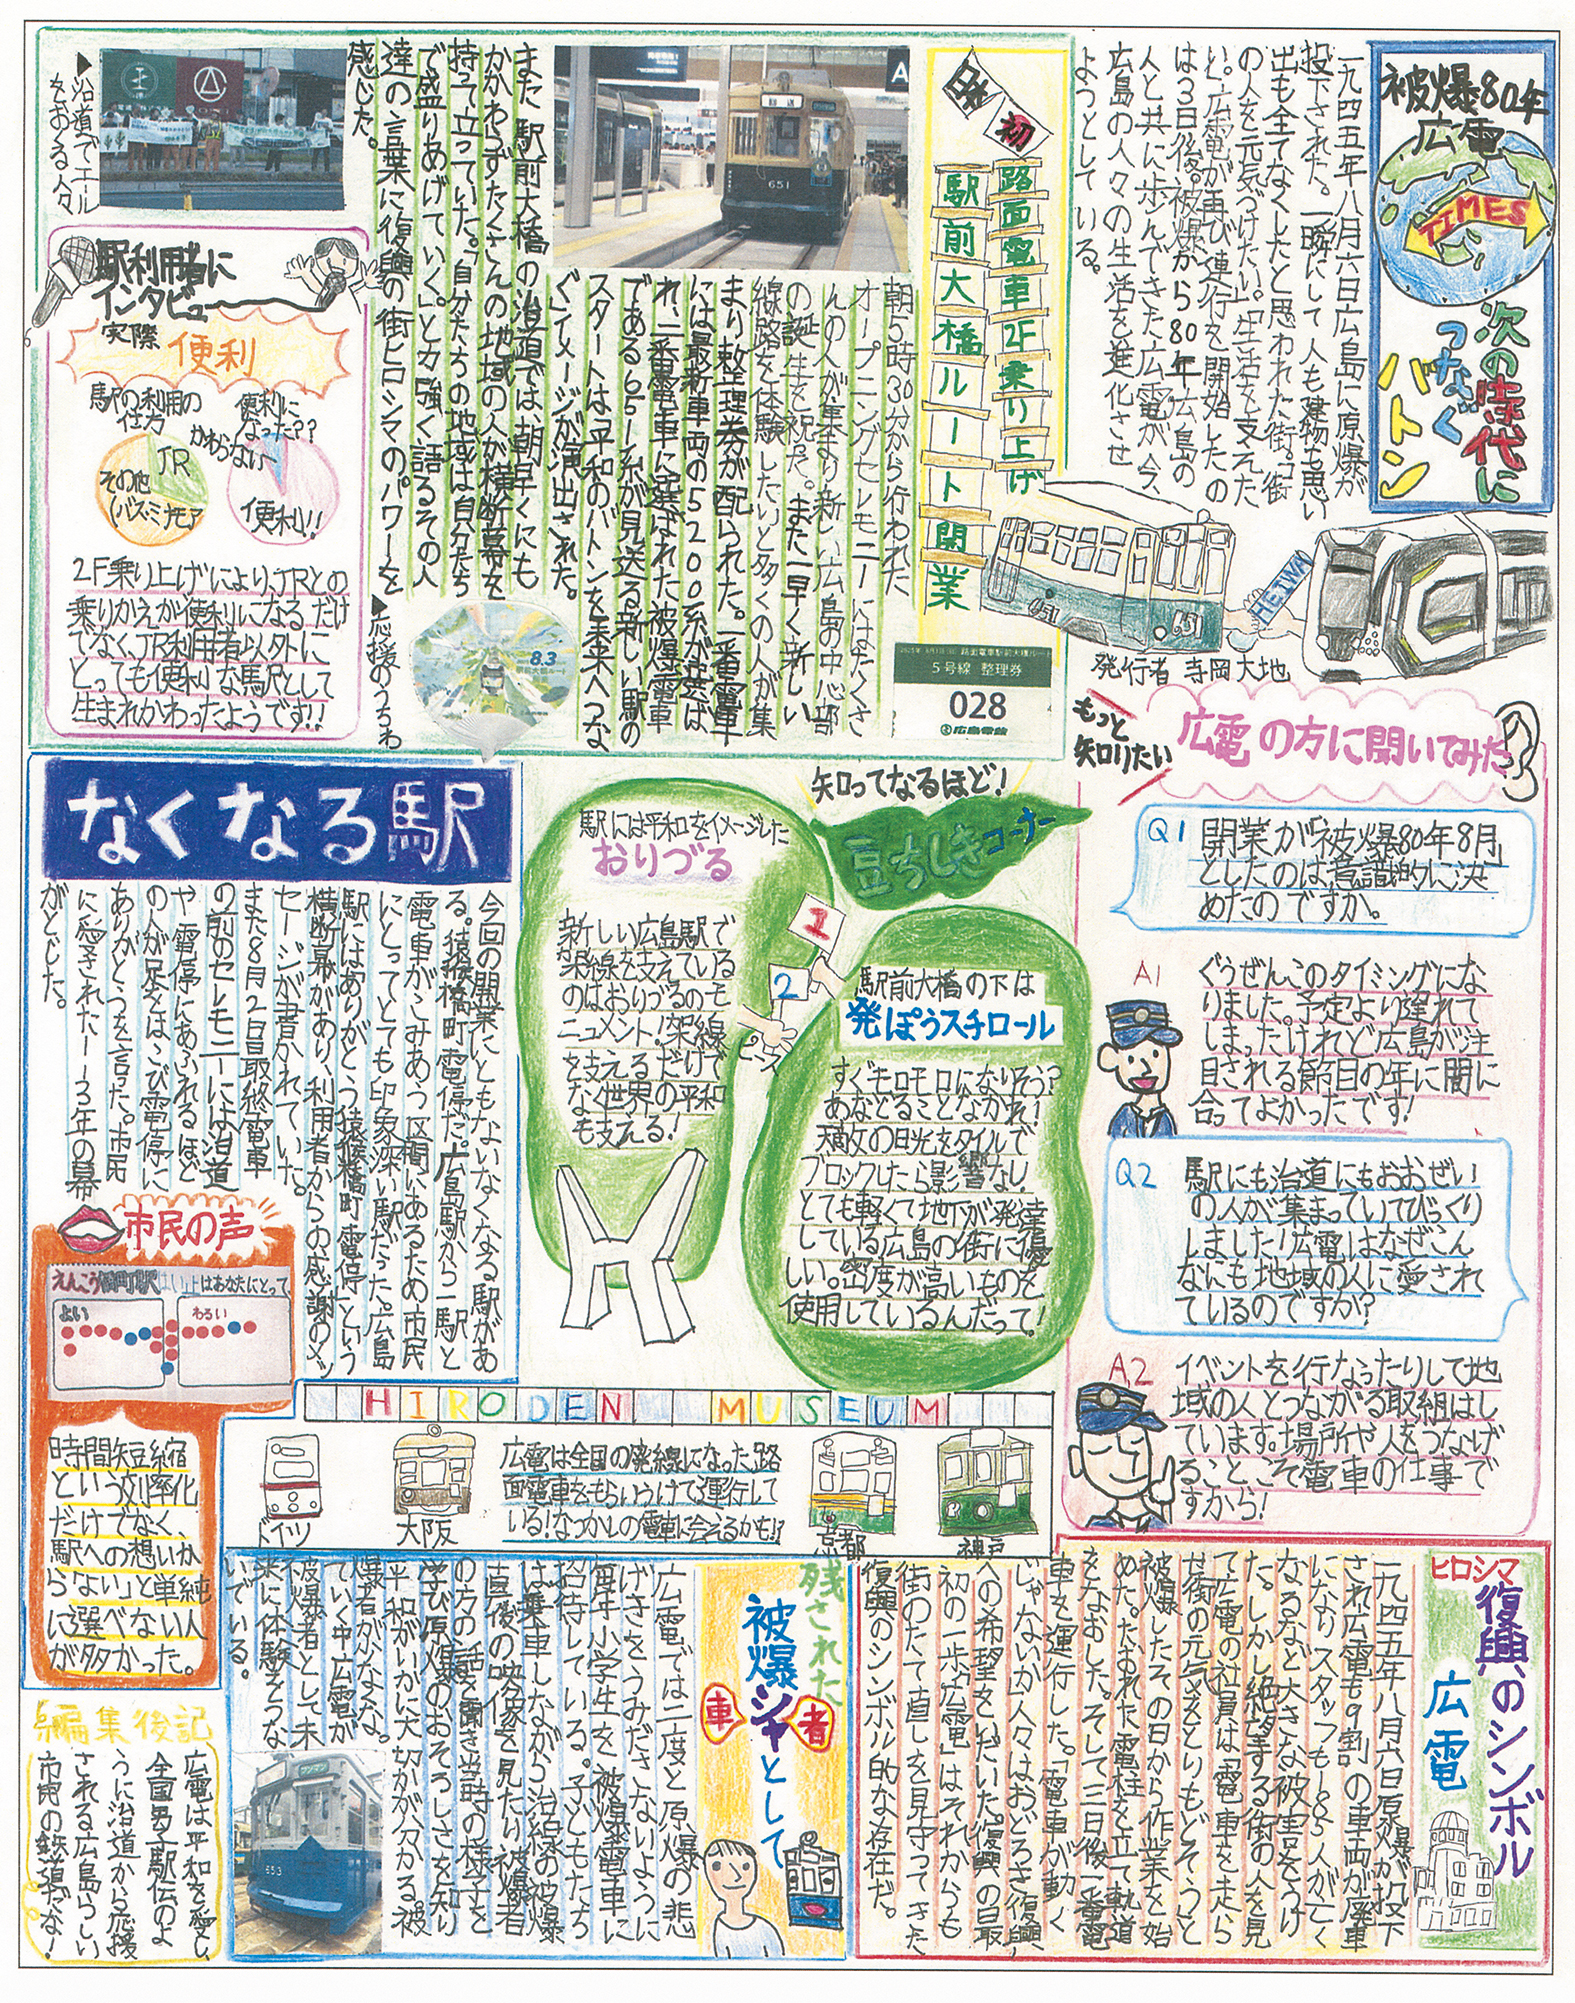 被爆80年
広電
TIMES
次の時代に
つなぐ
バトン
一九四五年八月六日広島に原爆が
投下された。一瞬にして人も建物も思い
出も全てなくしたと思われた街。「街
の人を元気づけたい。」「生活を支えた
い。」広電が再び運行を開始したの
は3日後。被爆から80年広島の
人と共に歩んできた広電が今、
広島の人々の生活を進化させ
ようとしている。
HEIWA
651
651
発行者 寺岡大地
日本初
路面電車2F乗り上げ
駅前大橋ルート開業
651
朝5時30分から行われた
オープニングセレモニーにはたくさ
んの人が集まり新しい広島の中心部
の誕生を祝った。また一早く新しい
線路を体験したいと多くの人が集
まり整理券が配られた。一番電車
には最新車両の5200系が選ば
れ、二番電車に選ばれた被爆電車
である651系が見送る新しい駅の
スタートは「平和のバトンを未来へつな
ぐ」イメージが演出された。
また駅前大橋の沿道では、朝早くにも
かかわらずたくさんの地域の人が横断幕を
持って立っていた。「自分たちの地域は自分たち
で盛りあげていく。」と力強く語るその人
達の言葉に復興の街ヒロシマのパワーを
感じた。
▶沿道でエール
をおくる人々
▶応援のうちわ
8.3
駅前大橋ルート
5号線 整理券
028
広島電鉄
駅利用者に
インタビュー
実際 便利
駅の利用の
仕方
JR
その他
(バスミナモア
便利に
なった??
かわらない
便利!!
2F乗り上げにより、JRとの
乗りかえが便利になるだけ
でなく、JR利用者以外に
とっても便利な駅として
生まれかわったようです!!
もっと
知りたい
広電の方に聞いてみた
Q1 開業が「被爆80年8月」
としたのは意識的に決
めたのですか。
A1 ぐうぜんこのタイミングにな
りました。予定より遅れて
しまったけれど広島が注
目される節目の年に間に
合ってよかったです!
Q2 駅にも沿道にもおおぜい
の人が集まっていてびっくり
しました!広電はなぜこん
なにも地域の人に愛され
ているのですか?
A2 イベントを行なったりして地
域の人とつながる取組はし
ています。場所や人をつなげ
ること、こそ電車の仕事で
すから!
知ってなるほど!
豆ちしきコーナー
1
駅には平和をイメージした
おりづる
新しい広島駅で
架線を支えている
のはおりづるのモ
ニュメント!架線
を支えるだけで
なく世界の平和
も支える!
2
駅前大橋の下は
発ぽうスチロール
すぐモロモロになりそう?
あなどることなかれ!
大敵の日光をタイルで
ブロックしたら影響なし
とても軽くて地下が発達
している広島の街に優
しい。密度が高いものを
使用しているんだって!
なくなる駅
今回の開業にともないなくなる駅があ
る。猿猴橋町電停だ。広島駅から二駅と
電車がこみあう区間にあるため市民
にとってとても印象深い駅だった。広島
駅には「ありがとう猿猴橋町電停」という
横断幕があり、利用者からの感謝のメッ
セージが書かれていた。
また8月2日最終電車
の前のセレモニーには沿道
や電停にあふれるほど
の人が足をはこび電停に
ありがとうを言った。市民
に愛された113年の幕
がとじた。
市民の声
はあなたにとって
よい
わるい
時間短縮
という効率化
だけでなく、
駅への想いか
ら「ない」と単純
に選べない人
が多かった。
HIRODEN MUSEUM
ドイツ
大阪
広電は全国の廃線になった路
面電車をもらいうけて運行して
いる!なつかしの電車に会えるかも!?
京都
神戸
ヒロシマ
復興のシンボル
広電
一九四五年八月六日原爆が投下
され広電も9割の車両が廃車
になりスタッフも185人が亡く
なるなど大きな被害をうけ
た。しかし絶望する街の人を見
て広電の社員は「電車を走ら
せ街の元気をとりもどそう」と
被爆したその日から作業を始
めた。たおれた電柱を立て軌道
をなおした。そして三日後一番電
車を運行した。「電車が動く
じゃないか」人々はおどろき復興
への希望をいだいた。「復興の最
初の一歩広電」はそれからも
街のたて直しを見守ってきた
復興のシンボル的な存在だ。
残された
被爆シャとして
車
者
広電では二度と原爆の悲
げきをうみださないように
毎年小学生を被爆電車に
招待している。子どもたち
は乗車しながら沿線の被爆
直後の映像を見たり被爆者
の方の話を聞き当時の様子を
学び原爆のおそろしさを知り
平和がいかに大切かが分かる。被
爆者が少なくな
っていく中広電が
被爆者として未
来に体験をつな
いでいる。
653
編集後記
広電は平和を愛し、
全国男子駅伝のよ
うに沿道から応援
される広島らしい
市民の鉄道だな!